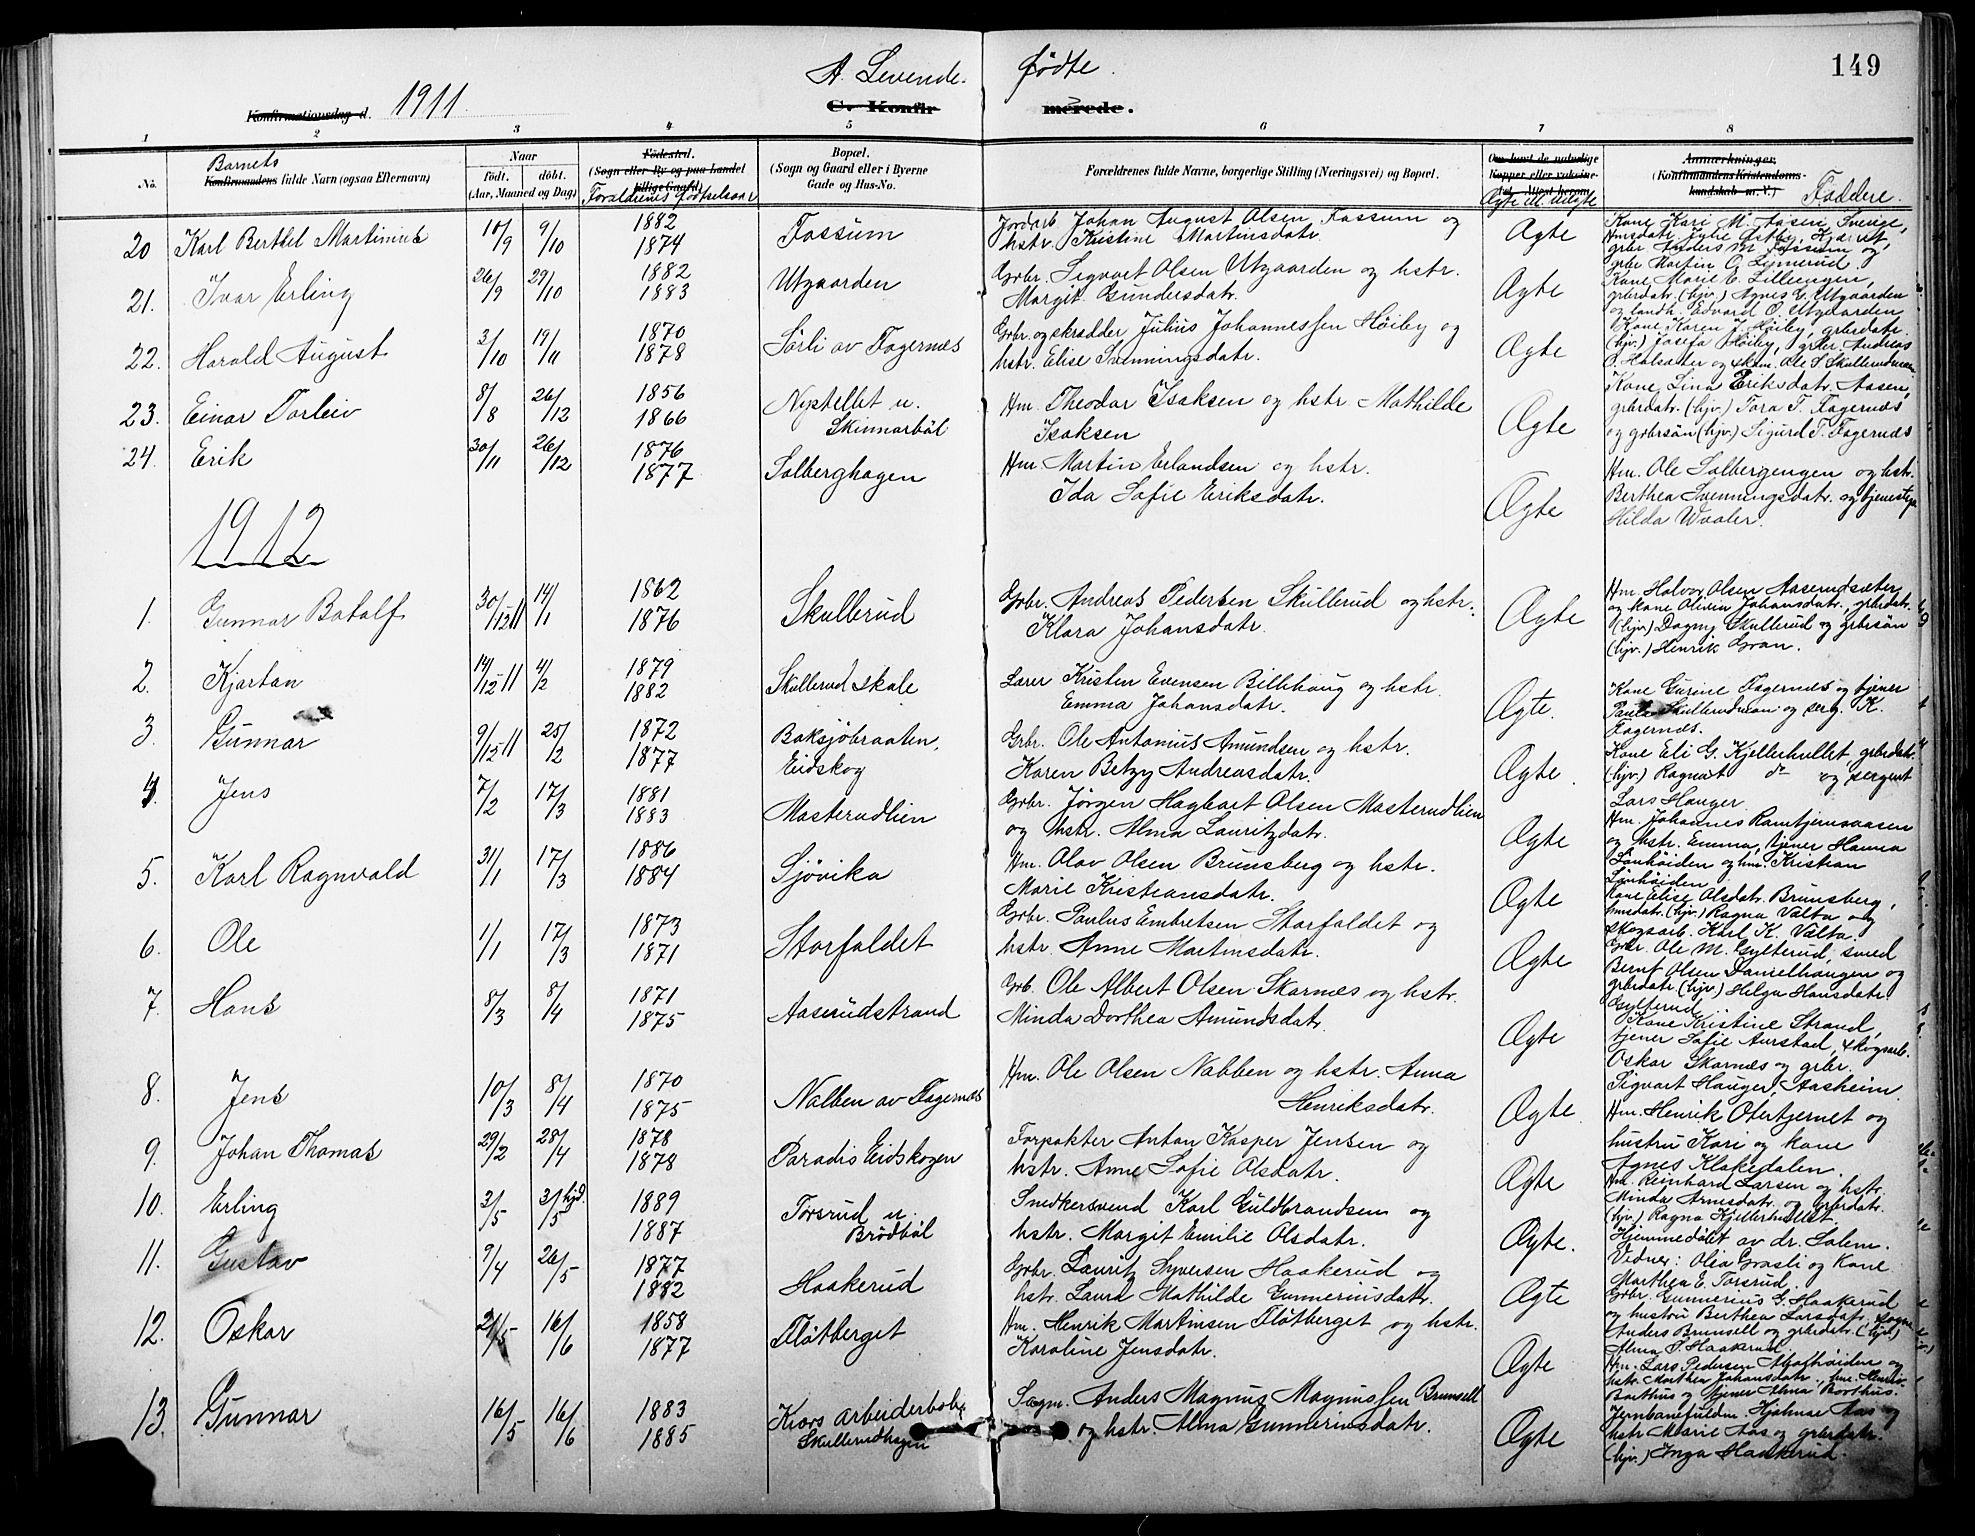 149
A. Levende fødte.
Konfirmationsdag d. 1911
C. Konfirmerede.
1 2 3 4 5 6 7 8
No.
Barnets
Konfirmandens fulde Navn (ogsaa Efternavn)
Naar
født. døbt.
(Aar, Maaned og Dag)
Fødested.
(Sogn eller By og paa Landet
tillige Gaard)
Forældrenes fødselsaar
Bopæl.
(Sogn og Gaard eller i Byerne
Gade og Hus-No.
Forældrenes fulde Navne, borgerlige Stilling (Næringsvei) og Bopæl.
Om havt de naturlige
Kopper eller vaksine-
Ægte ell. uægte
Anmærkninger.
(Konfirmandens Kristendoms-
kundskab m. V.)
Faddere.
20 Karl Berthel Martinius 10/9 9/10 1882 1874 Fossum Jordarb. Johan August Olsen Fossum og hstr. Kristine Martinsdatr. Ægte Kone Kari M. Aasen, Sverige,
grbr. Anders M. Fossum og
grbr. Martin O. Linnerud.
21. Ivar Erling 26/9 29/10 1882 1883 Utgaarden Grbr. Sigvart Olsen Utgaarden og hstr. Margit Gundersdatr. Ægte Kone Marie E. Lillengen,
grbrdatr. (hjv.) Agnes E. Utgaarden
og landh. Edvard O. Utgaarden
22. Harald August 3/10 19/11 1870 1878 Sørli av Fagernæs Grbr. og skrædder Julius Johannessen Høiby og hstr. Elise Svenningsdatr. Ægte Kone Karen J. Høiby, grbrdatr.
(hjv.) Josefa Høiby, grbr. Andreas
O. Halsæter og skom. Ole S. Skullerudmoen
23. Einar Torleiv 8/8 26/12 1856 1866 Nystellet u. Skinnarbøl Hm. Theodor Isaksen og hstr. Mathilde Isaksen Ægte Kone Lina Eriksdatr. Aasen,
grbrdatr. (hjv.) Tora T. Fagernæs
og grbrsøn (hjv.) Sigurd T. Fagernæs
24. Erik 30/11 26/12 1876 1877 Solberghagen Hm. Martin Erlandsen og hstr. Ida Sofie Eriksdatr. Ægte Hm. Ole Solbergengen og hstr.
Berthea Svenningsdatr. og tjenestepi.
Hilda Waaler.
1912
1. Gunnar Botolf 30/12 11 14/1 1862 1876 Skullerud Grbr. Andreas Pedersen Skullerud og hstr. Klara Johansdatr. Ægte Hm. Halvor Olsen Aaserudsæter
og kone Olivia Johansdatr., grbrdatr.
(hjv.) Dagny Skullerud og grbrsøn
(hjv.) Henrik Gran.
2. Kjartan 14/12 11 4/2 1879 1882 Skullerud skole Lærer Kristen Evensen Billehaug og hstr. Emma Johansdatr. Ægte. Kone Gurine Fagernæs og tjener
Paul Skullerudmoen og serg. K.
Fagernæs.
3. Gunnar 9/12 11 25/2 1872 1877 Baksjøbraaten, Eidskog Grbr. Ole Antonius Amundsen og hstr. Karen Betzy Andreasdatr. Ægte. Kone Eli G. Kjellerhullet, grbrdatr.
(hjv.) Ragna do og sergent
Lars Hauger
4. Jens 7/2 17/3 1881 1883 Masterudlien Grbr. Jørgen Hagbart Olsen Masterudlien og hstr. Alma Lauritzdatr. Ægte Hm. Johannes Ramtjernsaasen
og hstr. Emma, tjener Hanna
Lønhøiden og hm. Kristian
Lønhøiden
5. Karl Ragnvald 31/1 17/3 1886 1884 Sjøvika Hm. Olav Olsen Brunsberg og hstr. Marie Kristiansdatr. Ægte Kone Elise Olsdatr. Brunsberg,
hmsdatr. (hjv.) Ragna Valta og
skogsarb. Karl K. Valta.
6. Ole 1/1 17/3 1873 1871 Storfaldet Grbr. Paulus Embretsen Storfaldet og hstr. Anne Martinsdatr. Ægte Grbr. Ole M. Gylterud, smed
Bernt Olsen Danielhaugen og
grbrdatr. (hjv.) Helga Hansdatr.
Gylterud
7. Hans 8/3 8/4 1871 1875 Aaserudstrand Grb. Ole Albert Olsen Skarnæs og hstr. Minda Dorthea Amundsdatr. Ægte Kone Kristine Strand,
tjener Sofie Aurstad, skogsarb.
Oskar Skarnæs og grbr.
Sigvart Hauger, Aasheim.
8. Jens 10/3 8/4 1870 1875 Nabben av Fagernæs Hm. Ole Olsen Nabben og hstr. Anna Henriksdatr. Ægte. Hm. Henrik Otertjernet og
hustru Kari og kone
Agnes Klakedalen.
9. Johan Thomas 29/2 28/4 1878 1878 Paradis Eidskogen Forpakter Anton Kasper Jensen og hstr. Anne Sofie Olsdatr. Ægte Hm. Reinhard Larsen og hstr.
Minda Arnesdatr. og grbrdatr.
(hjv.) Ragna Kjellerhullet
10. Erling 3/5 3/5 hjd. 1889 1887 Torsrud u. Brødbøl Snedkersvend Karl Guldbrandsen og hstr. Margit Emilie Olsdatr. Ægte. Hjemmedøbt av dr. Salem.
Vidner: Olea Grasli og kone
Marthea E. Torsrud.
11. Gustav 9/4 26/5 1877 1882 Haakerud Grbr. Lauritz Syversen Haakerud og hstr. Laura Mathilde Gunneriusdatr. Ægte Grbr. Gunnerius G. Haakerud
og hustru Berthea Larsdatr, sagm.
Anders Brunsell og grbrdatr. (hjv)
Alma S. Haakerud.
12. Oskar 21/5 16/6 1858 1877 Fløtberget Hm. Henrik Martinsen Fløtberget og hstr. Karoline Jensdatr. Ægte Hm. Lars Pedersen og
hstr. Marthea Johansdatr., hm. Henrik
Borthus og tjener Alma Borthus.
13. Gunnar 16/5 16/6 1883 1885 Kiærs arbeiderbolig Skullerudhagen Sagm. Anders Magnus Magnussen Brunsell og hstr. Alma Gunneriusdatr. Ægte Jernbanefuldm. Hjalmar Aas og
hstr. Marie Aas og grbrdatr.
(hjv.) Inga Haakerud.